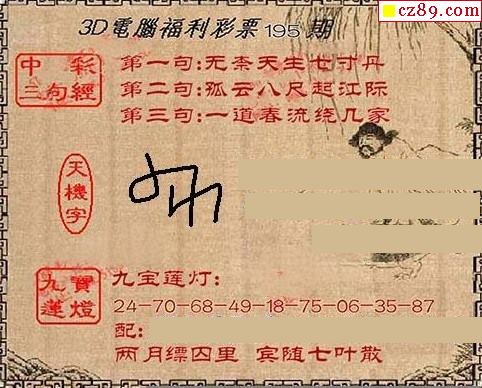 cz89.com
3D電腦福利彩票195期
中彩三句經
第一句:无柰天生七寸丹
第二句:孤云八尺起江际
第三句:一道春流绕几家
天機字
九寶蓮燈
九宝莲灯:
24-70-68-49-18-75-06-35-87
配:
两月缥囚里 宾随七叶散